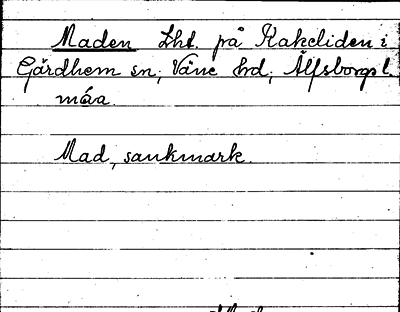 Maden Lht. på Kakeliden i
Gärdhem sn, Väne hd, Älfsborgs l.
måa.
Mad, sankmark.